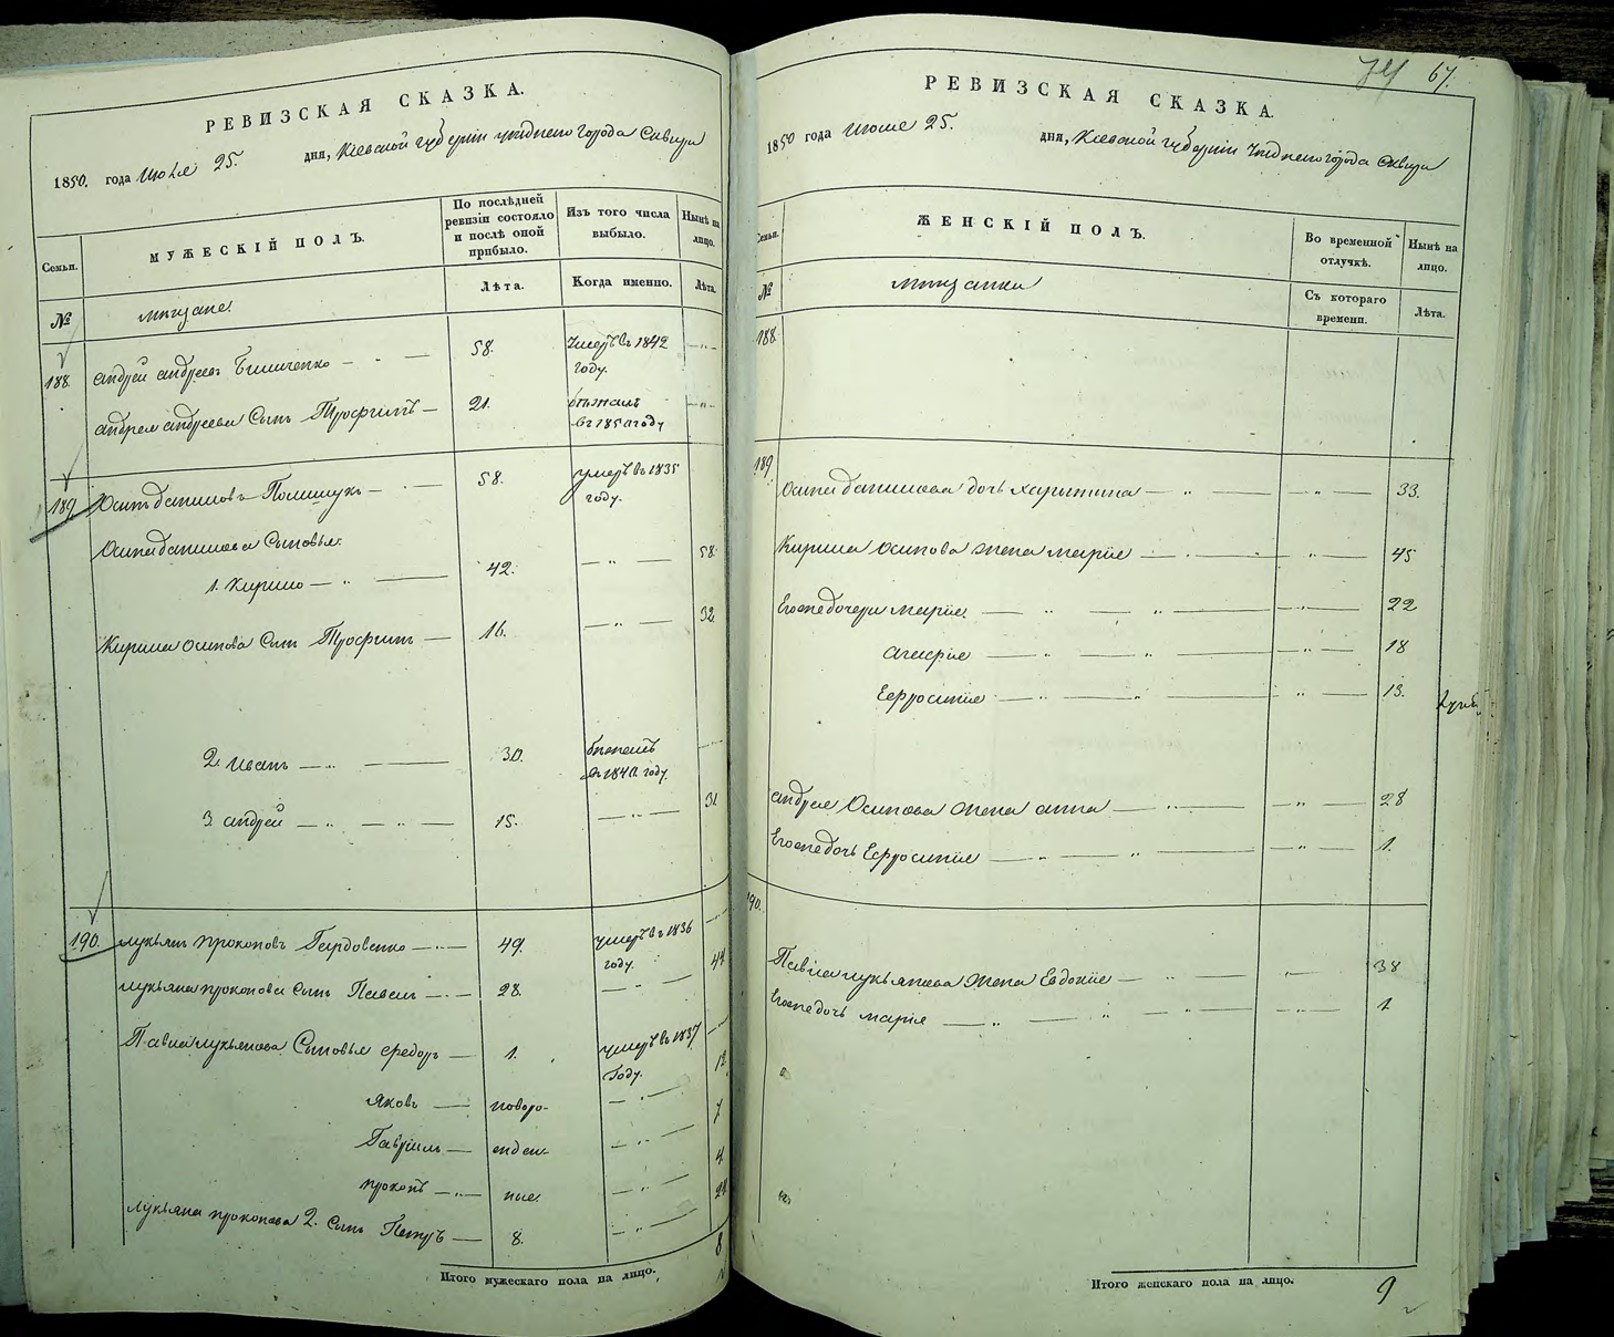 РЕВИЗСКАЯ СКАЗКА.
1850. года Июля 25. дня, Кіевской губерніи уѣзднаго города Сквиры
Семьи.
МУЖЕСКІЙ ПОЛЪ.
По послѣдней
ревизіи состояло
и послѣ оной
прибыло.
Изъ того числа
выбыло.
Нынѣ на
лицо.
№
мѣщане.
Лѣта.
Когда именно.
Лѣта.
188. Андрей Андреевъ — 58. умеръ въ 1842
году.
Андрея Андреева Сынъ Трофимъ — 21. бѣжалъ
въ 1850 году
189. Осипъ Даниловъ Полищукъ — 58. умеръ въ 1835
году.
Осипа Данилова Сыновья:
1. Кирило — 42. — 58.
Кирила Осипова Сынъ Трофимъ — 16. — 32.
2. Иванъ — 30. бѣжалъ
въ 1840 году.
3. Андрей — 15. — 31
190. Лукьянъ Прокоповъ — 49. умеръ въ 1836
году.
Лукьяна Прокопова Сынъ Павелъ — 28. — 44
Павла Лукьянова Сыновья Федоръ — 1. умеръ въ 1837
году.
Яковъ — новоро- — 12
Гавріилъ — жден- — 7
Прокопъ — ные. — 4
Лукьяна Прокопова 2. Сынъ Петръ — 8. — 24
Итого мужескаго пола на лицо. 8
67.
РЕВИЗСКАЯ СКАЗКА.
1850 года Июля 25. дня, Кіевской губерніи уѣзднаго города Сквиры
Семьи.
ЖЕНСКІЙ ПОЛЪ.
Во временной
отлучкѣ.
Нынѣ на
лицо.
№
мѣщанки
Съ котораго
времени.
Лѣта.
188.
189. Осипа Данилова дочь Харытина — 33.
Кирила Осипова жена Марія — 45
Его же дочери Марія. — 22
Агафія — 18
Ефросинія — 13.
Андрея Осипова жена Анна — 28
Его же дочь Ефросинія — 1.
190.
Павла Лукьянова жена Евдокія — 38
Его же дочь Марія — 1
Итого женскаго пола на лицо. 9